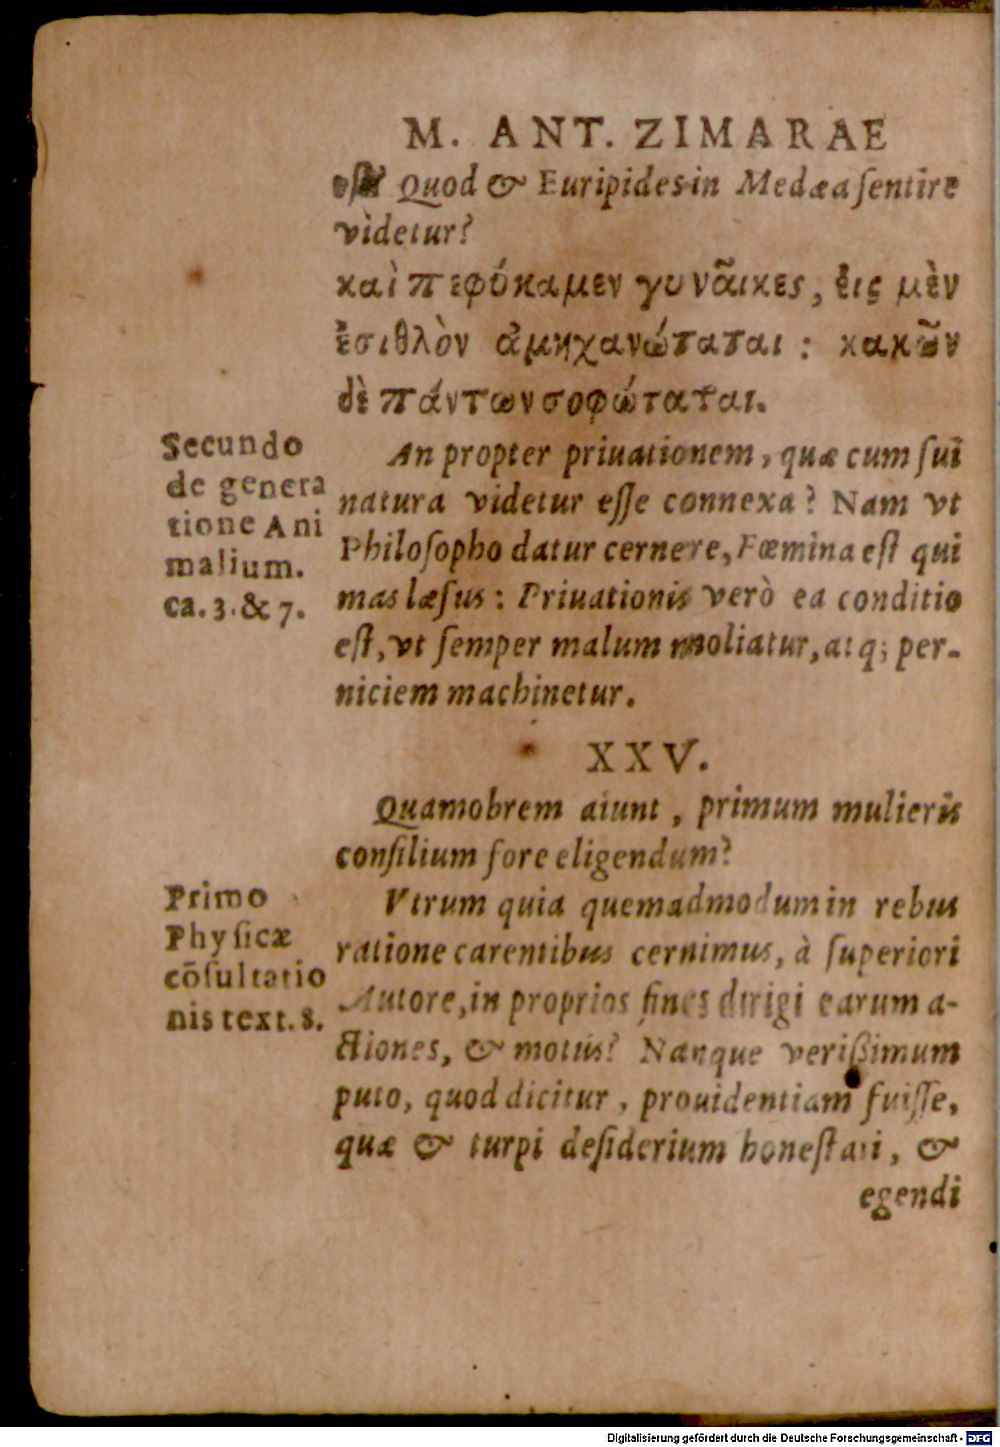 M. ANT. ZIMARAE
est? Quod & Euripides in Medæa sentire
videtur?
καὶ πεφύκαμεν γυνᾶικες, ἐις μὲν
ἐσιθλὸν ἀμηχανώταται : κακῶν
δὲ πάντων σοφώταται.
Secundo
de genera
tione Ani
malium.
ca. 3. & 7.
An propter priuationem, quæ cum sui
natura videtur esse connexa? Nam vt
Philosopho datur cernere, Fœmina est qui
mas læsus : Priuationis verò ea conditio
est, vt semper malum moliatur, atq; per-
niciem machinetur.
XXV.
Quamobrem aiunt, primum mulieris
consilium fore eligendum?
Primo
Physicæ
cõsultatio
nis text. 8.
Vtrum quia quemadmodum in rebus
ratione carentibus cernimus, à superiori
Autore, in proprios fines dirigi earum a-
ctiones, & motus? Nanque verißimum
puto, quod dicitur, prouidentiam fuisse,
quæ & turpi desiderium honestati, &
egendi
Digitalisierung gefördert durch die Deutsche Forschungsgemeinschaft - DFG